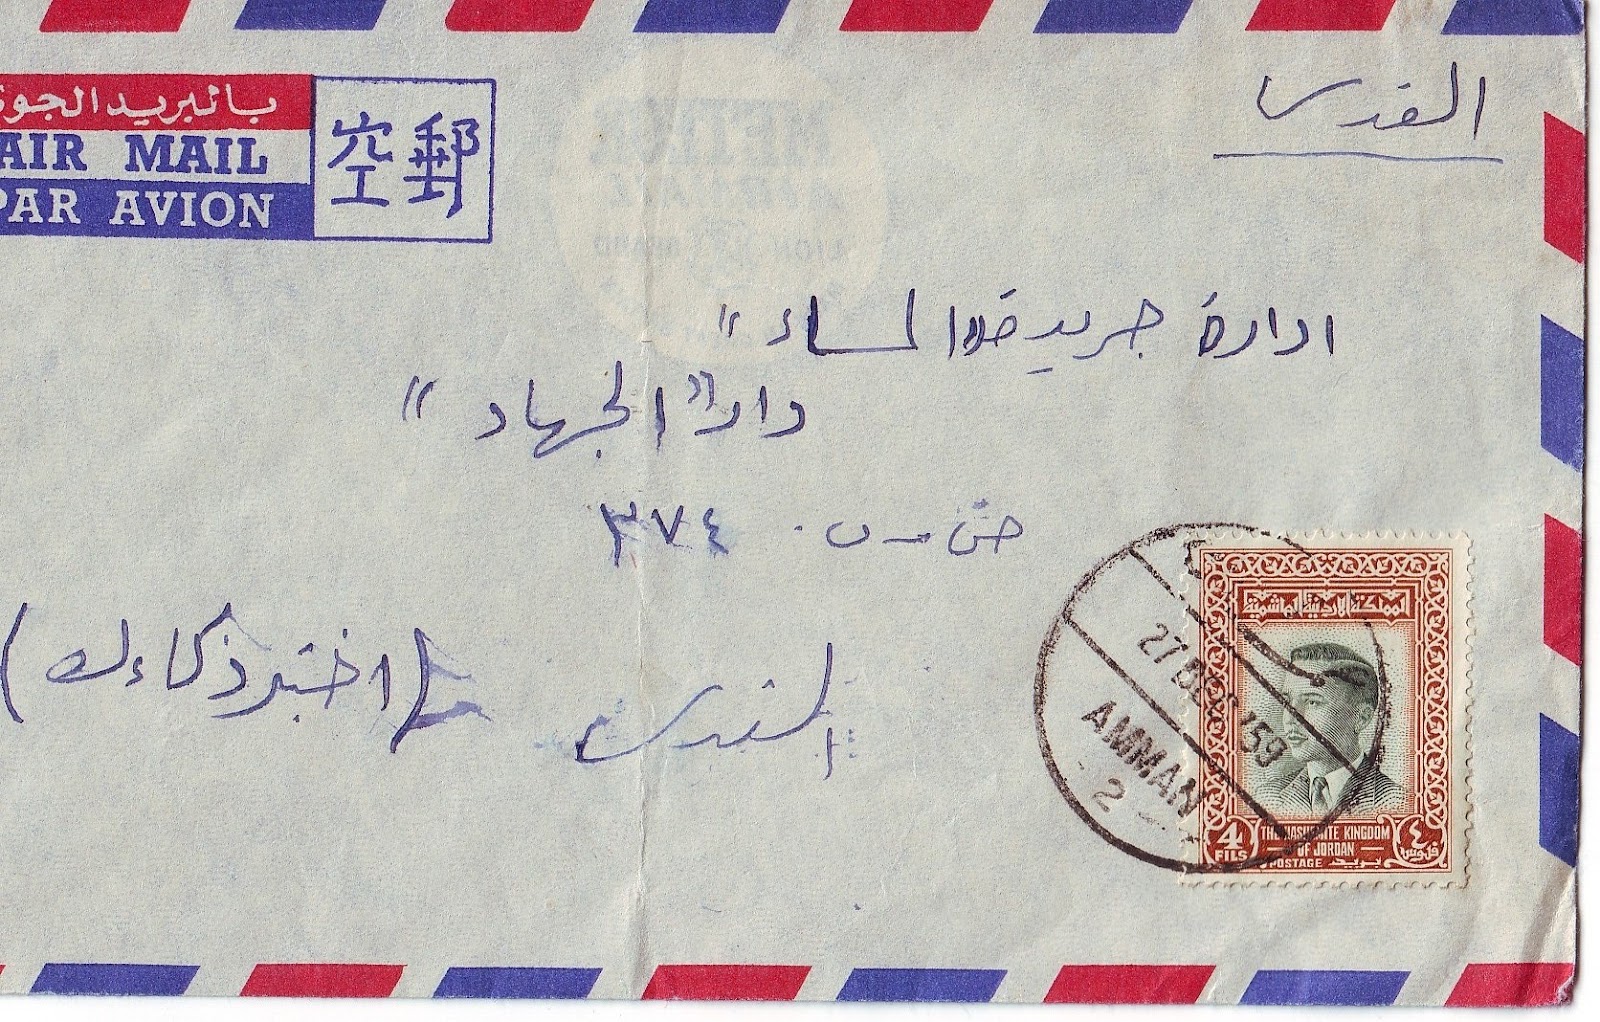 بالبريد الجو
AIR MAIL
PAR AVION
空郵
القدس
ادارة جريدة "المساء"
دار "الجهاد"
ص. ب. ٣٧٤
القدس (اختبر ذكاءك)
27 DEC 59
AMMAN
2
المملكة الاردنية الهاشمية
4 FILS
THE HASHEMITE KINGDOM
OF JORDAN
POSTAGE بريد
٤ فلوس